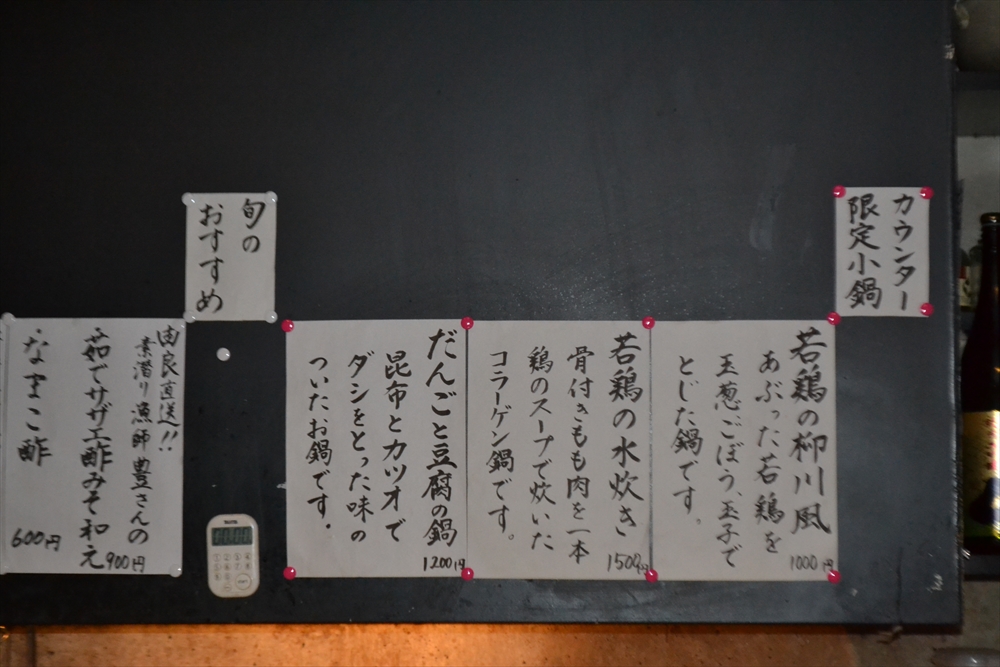 カウンター
限定小鍋
若鶏の柳川風
あぶった若鶏を
玉葱、ごぼう、玉子で
とじた鍋です。
1000円
若鶏の水炊き
骨付きもも肉を一本
鶏のスープで炊いた
コラーゲン鍋です。
1500円
だんごと豆腐の鍋
昆布とカツオで
ダシをとった味の
ついたお鍋です。
1200円
旬の
おすすめ
由良直送!!
素潜り漁師 豊さんの
茹でサザエ酢みそ和え
900円
なまこ酢
600円